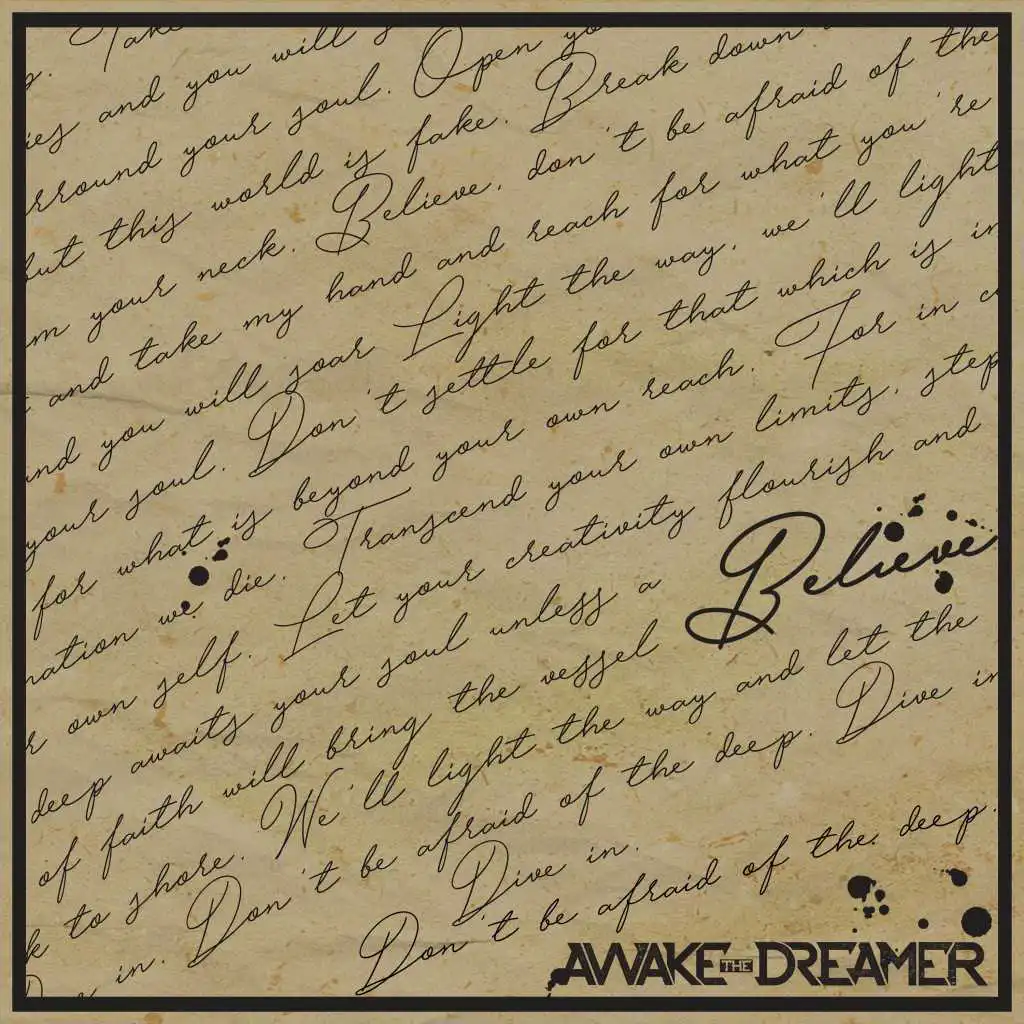 Take
ies and you will
rround your soul. Open yo
but this world is fake. Break down
m your neck. Believe, don't be afraid of the
and take my hand and reach for what you're
and you will soar Light the way, we'll light
your soul. Don't settle for that which is in
for what is beyond your own reach. For in c
nation we die. Transcend your own limits, step
r own self. Let your creativity flourish and
deep awaits your soul unless a Believe
of faith will bring the vessel
k to shore. We'll light the way and let the
in. Don't be afraid of the deep. Dive in
Dive in.
Don't be afraid of the deep.
AWAKE THE DREAMER